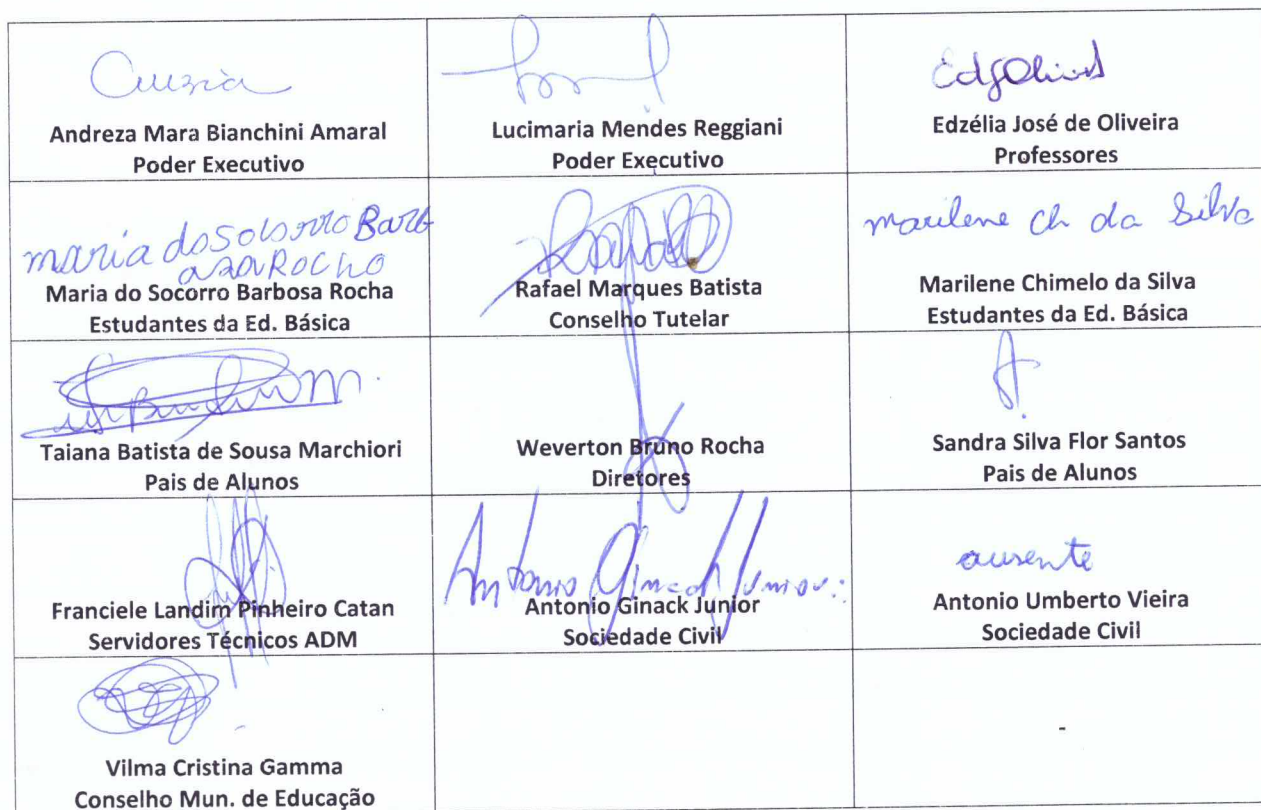 Andreza Mara Bianchini Amaral
Poder Executivo
Lucimaria Mendes Reggiani
Poder Executivo
EdzOlivers
Edzélia José de Oliveira
Professores
maria do Socorro Barb
osa ROCHO
Maria do Socorro Barbosa Rocha
Estudantes da Ed. Básica
Rafael Marques Batista
Conselho Tutelar
marilene Ch da Silva
Marilene Chimelo da Silva
Estudantes da Ed. Básica
Taiana Batista de Sousa Marchiori
Pais de Alunos
Weverton Bruno Rocha
Diretores
Sandra Silva Flor Santos
Pais de Alunos
Franciele Landim Pinheiro Catan
Servidores Técnicos ADM
Antonio Ginack Junior
Antonio Ginack Junior
Sociedade Civil
ausente
Antonio Umberto Vieira
Sociedade Civil
Vilma Cristina Gamma
Conselho Mun. de Educação
-